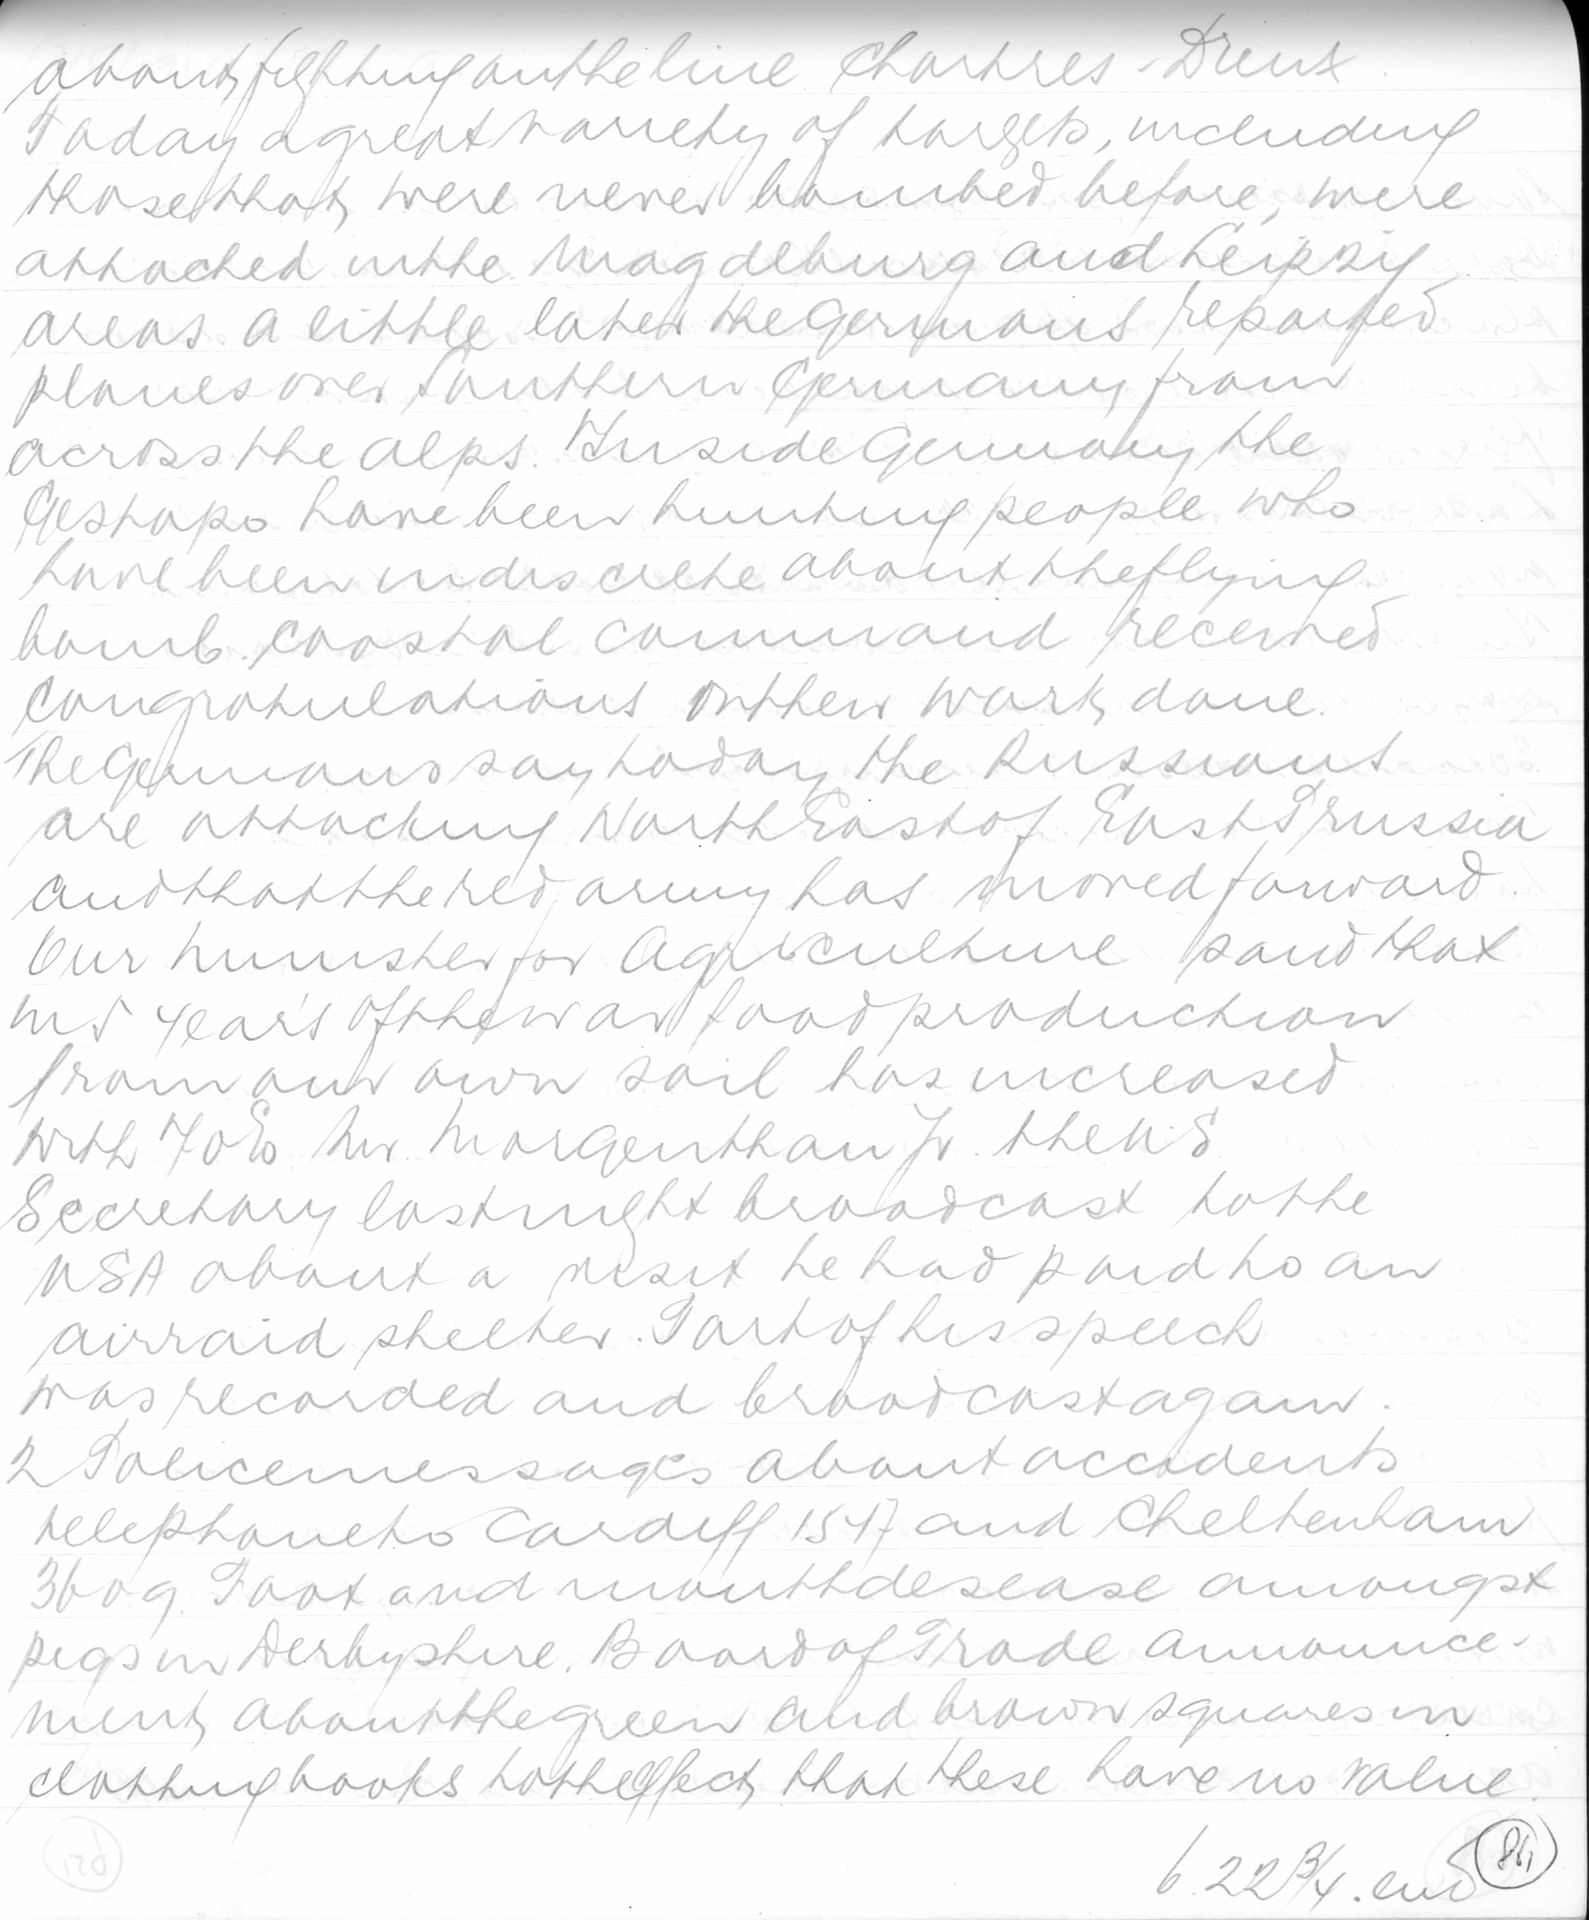 about fighting on the line Chartres - Dreux.
Today a great variety of targets, including
those that were never bombed before, were
attacked in the Magdeburg and Leipzig
areas. A little later the Germans reported
planes over Southern Germany from
across the alps. Inside Germany the
Gestapo have been hunting people who
have been indiscrete about the flying
bomb. Coastal Command received
congratulations on their work done.
The Germans say today the Russians
are attacking North East of East Prussia
and that the red army has moved forward.
Our Minister for Agriculture said that
in 5 year's of the war food production
from our own soil has increased
with 70%. Mr. Morgenthau Jr. the U.S.
Secretary last night broadcast to the
USA about a visit he had paid to an
airraid shelter. Part of his speech
was recorded and broadcast again.
2 Police messages about accidents
telephone to Cardiff 1547 and Cheltenham
3609. Foot and mouth desease amongst
pigs in Derbyshire. Board of Trade announce-
ment about the green and brown squares in
clothing books to the effect that these have no value.
6.22 3/4. end